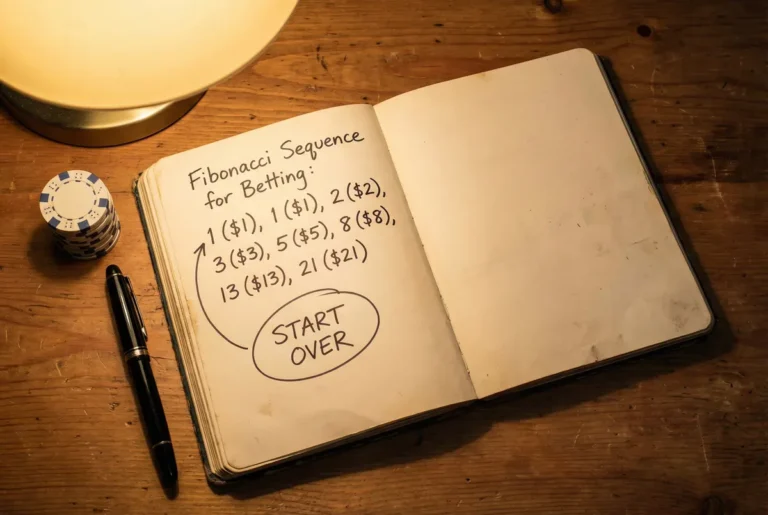 Fibonacci Sequence
for Betting:
1 ($1), 1 ($1), 2 ($2),
3 ($3), 5 ($5), 8 ($8),
13 ($13), 21 ($21)
START
OVER